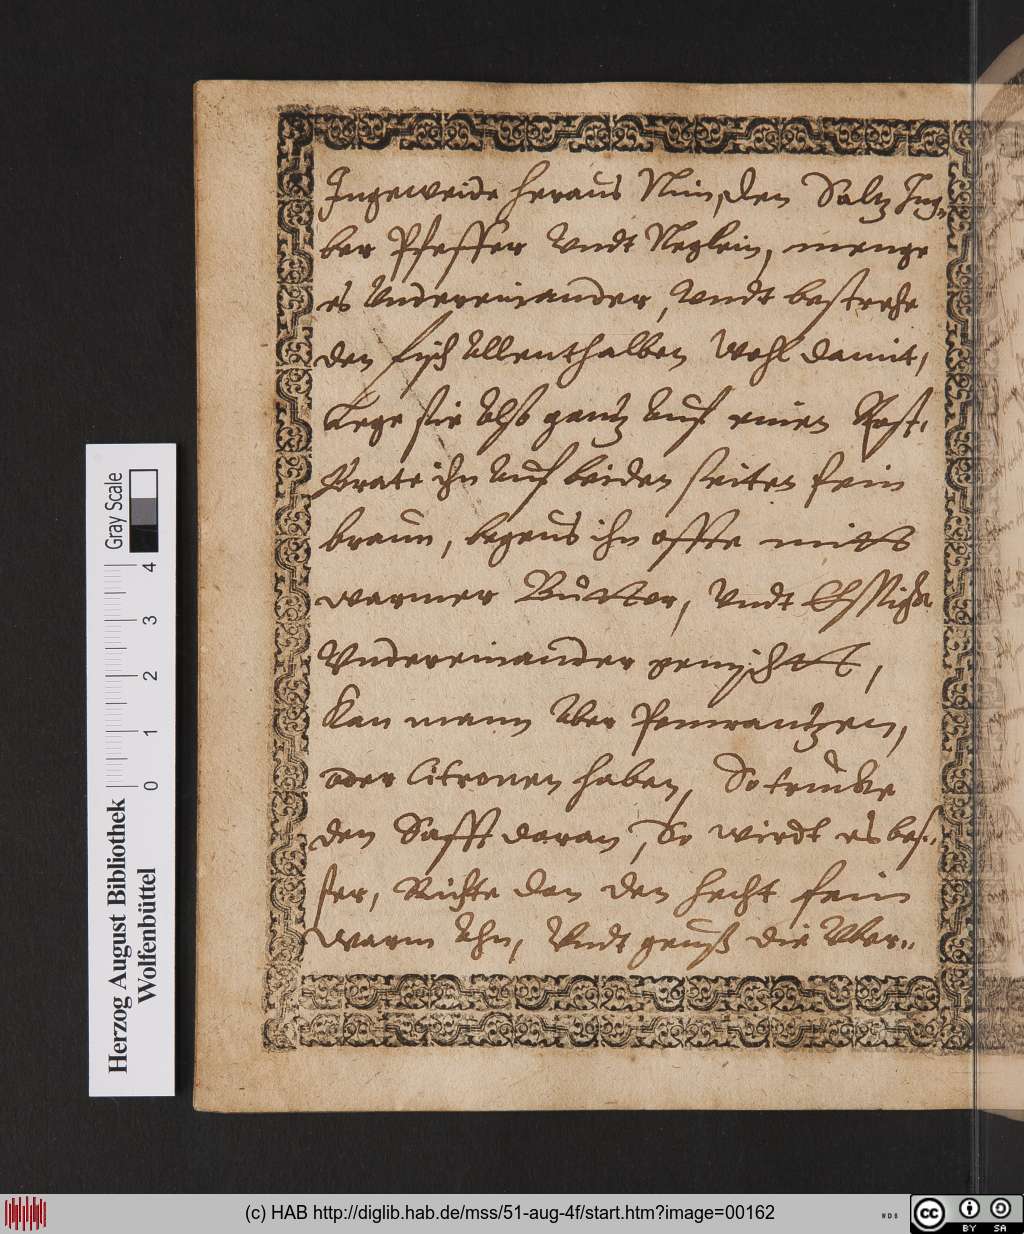 Ingeweide heraus Nim, den Saltz Ing-
ber Pfeffer Undt Neglein, menge
es Undereinander, Undt bestrehe
den fisch Allenthalben Wohl damit,
Lege sie Also gantz Auf einen Rost,
Brate ihn Auf beiden seiten fein
braun, begeus ihn offte mitt
warmer Bůtter, Undt Essigk
Undereinander gemischtt,
Kan mann Aber Pomrantzen,
oder Citronen haben, So trucke
den Safft daran, So wirdt es bes-
ser, Richte den den hecht fein
warm Ahn, Undt geuß die Uber-
Gray Scale
4
3
2
1
0
Herzog August Bibliothek
Wolfenbüttel
(c) HAB http://diglib.hab.de/mss/51-aug-4f/start.htm?image=00162
WDB
cc
BY SA